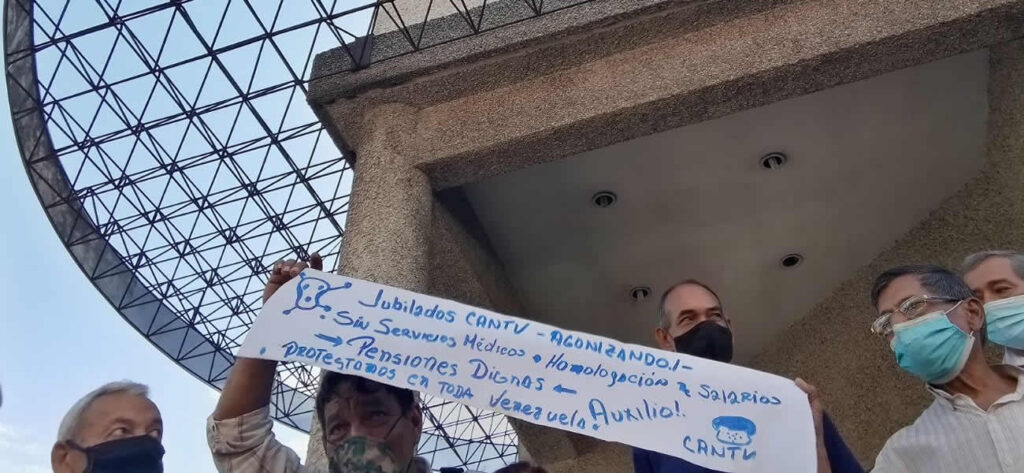 Jubilados CANTV - AGONIZANDO.!-
Sin Servicios Médicos • Homologación de Salarios
→ Pensiones Dignas ←
• PROTESTAMOS EN TODA Venezuela. Auxilio!.
CANTV